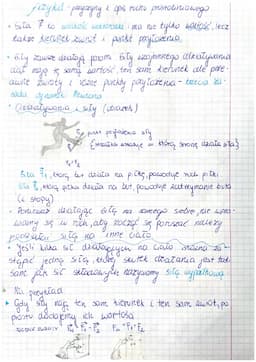 Fizyka - przyczyny i opis ruchu prostoliniowego
• Siła F to wielkość wektorowa - ma nie tylko wartość, lecz
także kierunek zwrot i punkt przyłożenia.
• Siły zawsze działają parami. Siły wzajemnego oddziaływania
ciał mają tę samą wartość, ten sam kierunek, ale
zwroty i różne punkty przyłożenia - trzecia
dynamiki Newtona
• Oddziaływania i siły (wzór)
siły
w którą stronę działa siła
F₁=F₂
Siła F₁, którą but działa na piłkę, powoduje ruch piłki.
Siła F₂, którą piłka działa na but, powoduje zatrzymanie buta
(i stopy)
• Ponieważ działając siłą na samego siebie, nie
się w ruch, aby zacząć się poruszać należy
siłą na inne ciało.
• Jeśli kilka sił działających na ciało można za-
stąpić jedną siłą, której skutek działania jest taki
sam jak sił składowych nazywamy siłą wypadkową
Na przykład
• Gdy siły mają ten sam kierunek i ten sam zwrot, po
prostu dodajemy ich wartości